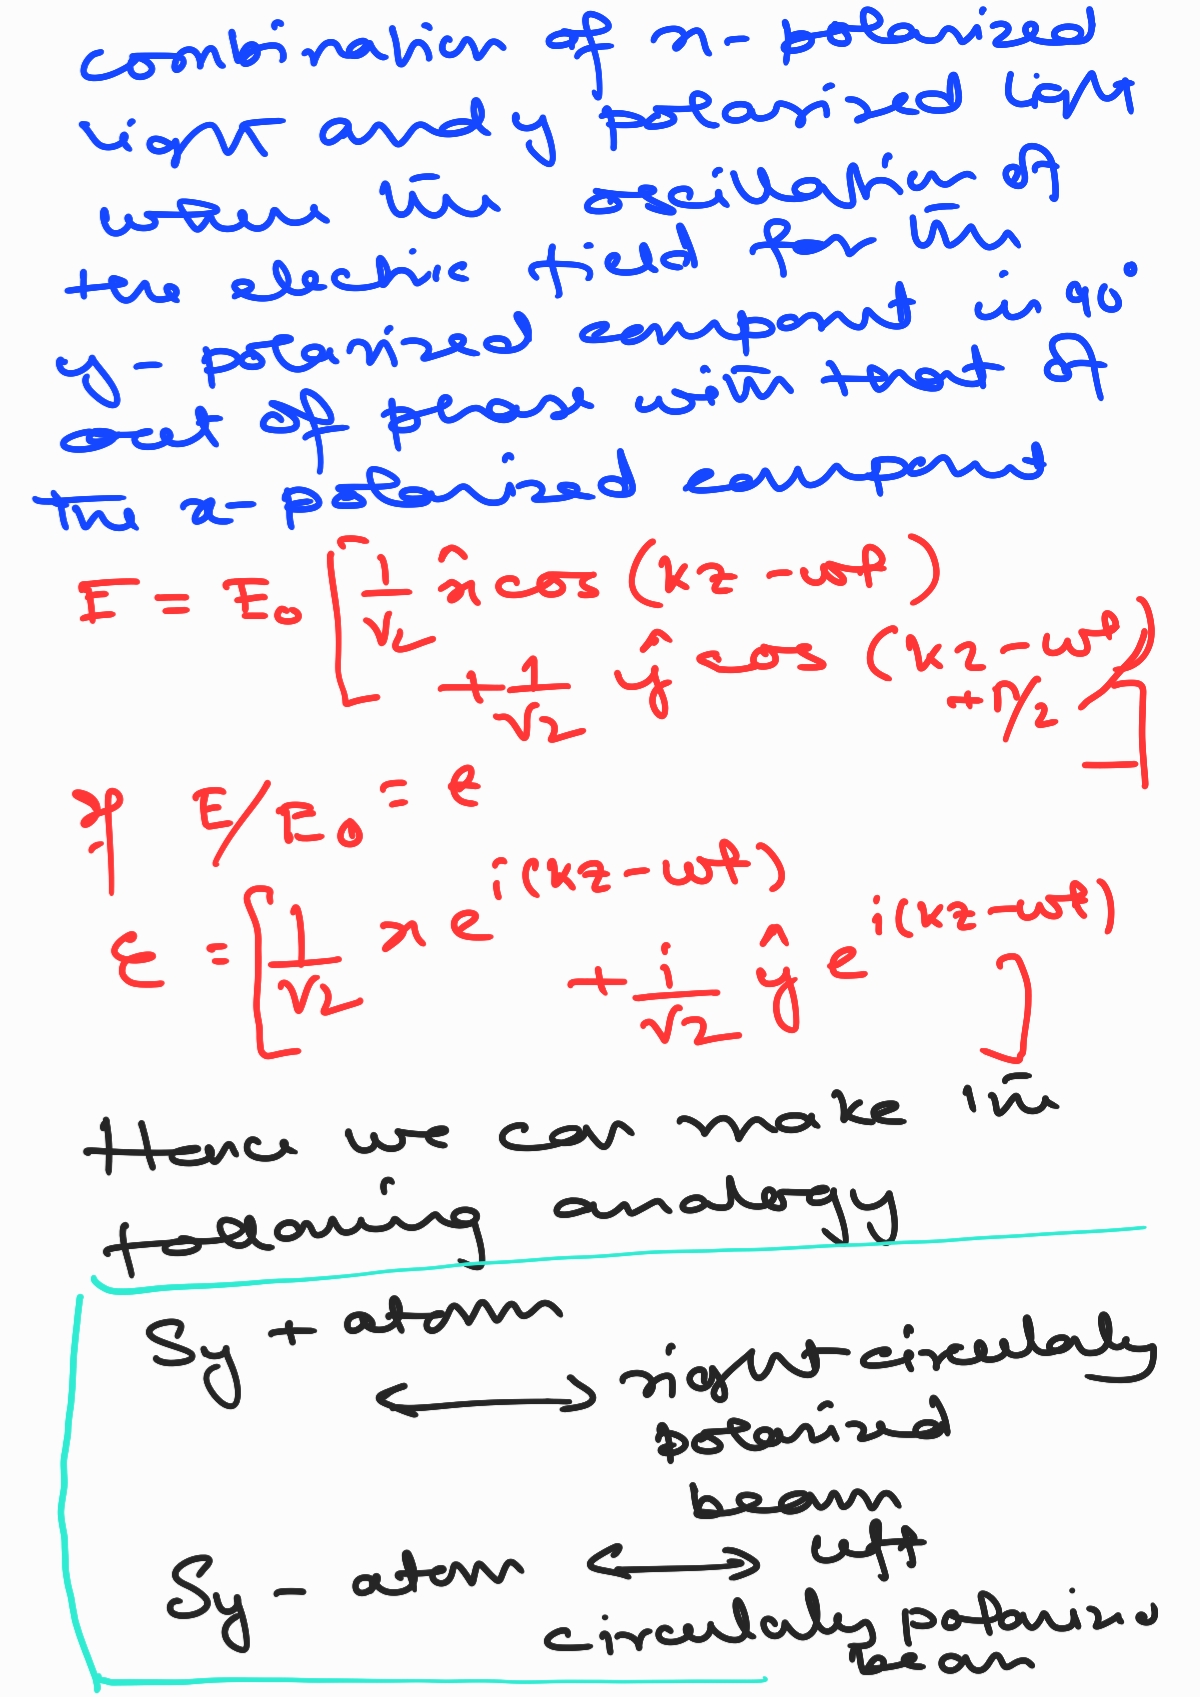 combination of x-polarized
light and y polarized light
where the oscillation of
the electric field for the
y-polarized component is 90°
out of phase with that of
the x-polarized component
E = E₀ [ 1/√2 x̂ cos (kz - ωt)
+ 1/√2 ŷ cos (kz - ωt + π/2) ]
If E/E₀ = e
ε = [ 1/√2 x e^{i(kz - ωt)}
+ i/√2 ŷ e^{i(kz - ωt)} ]
Hence we can make the
following analogy
Sy + atom
⟷ right circularly
polarized
beam
Sy - atom ⟷ left
circularly polarized
beam